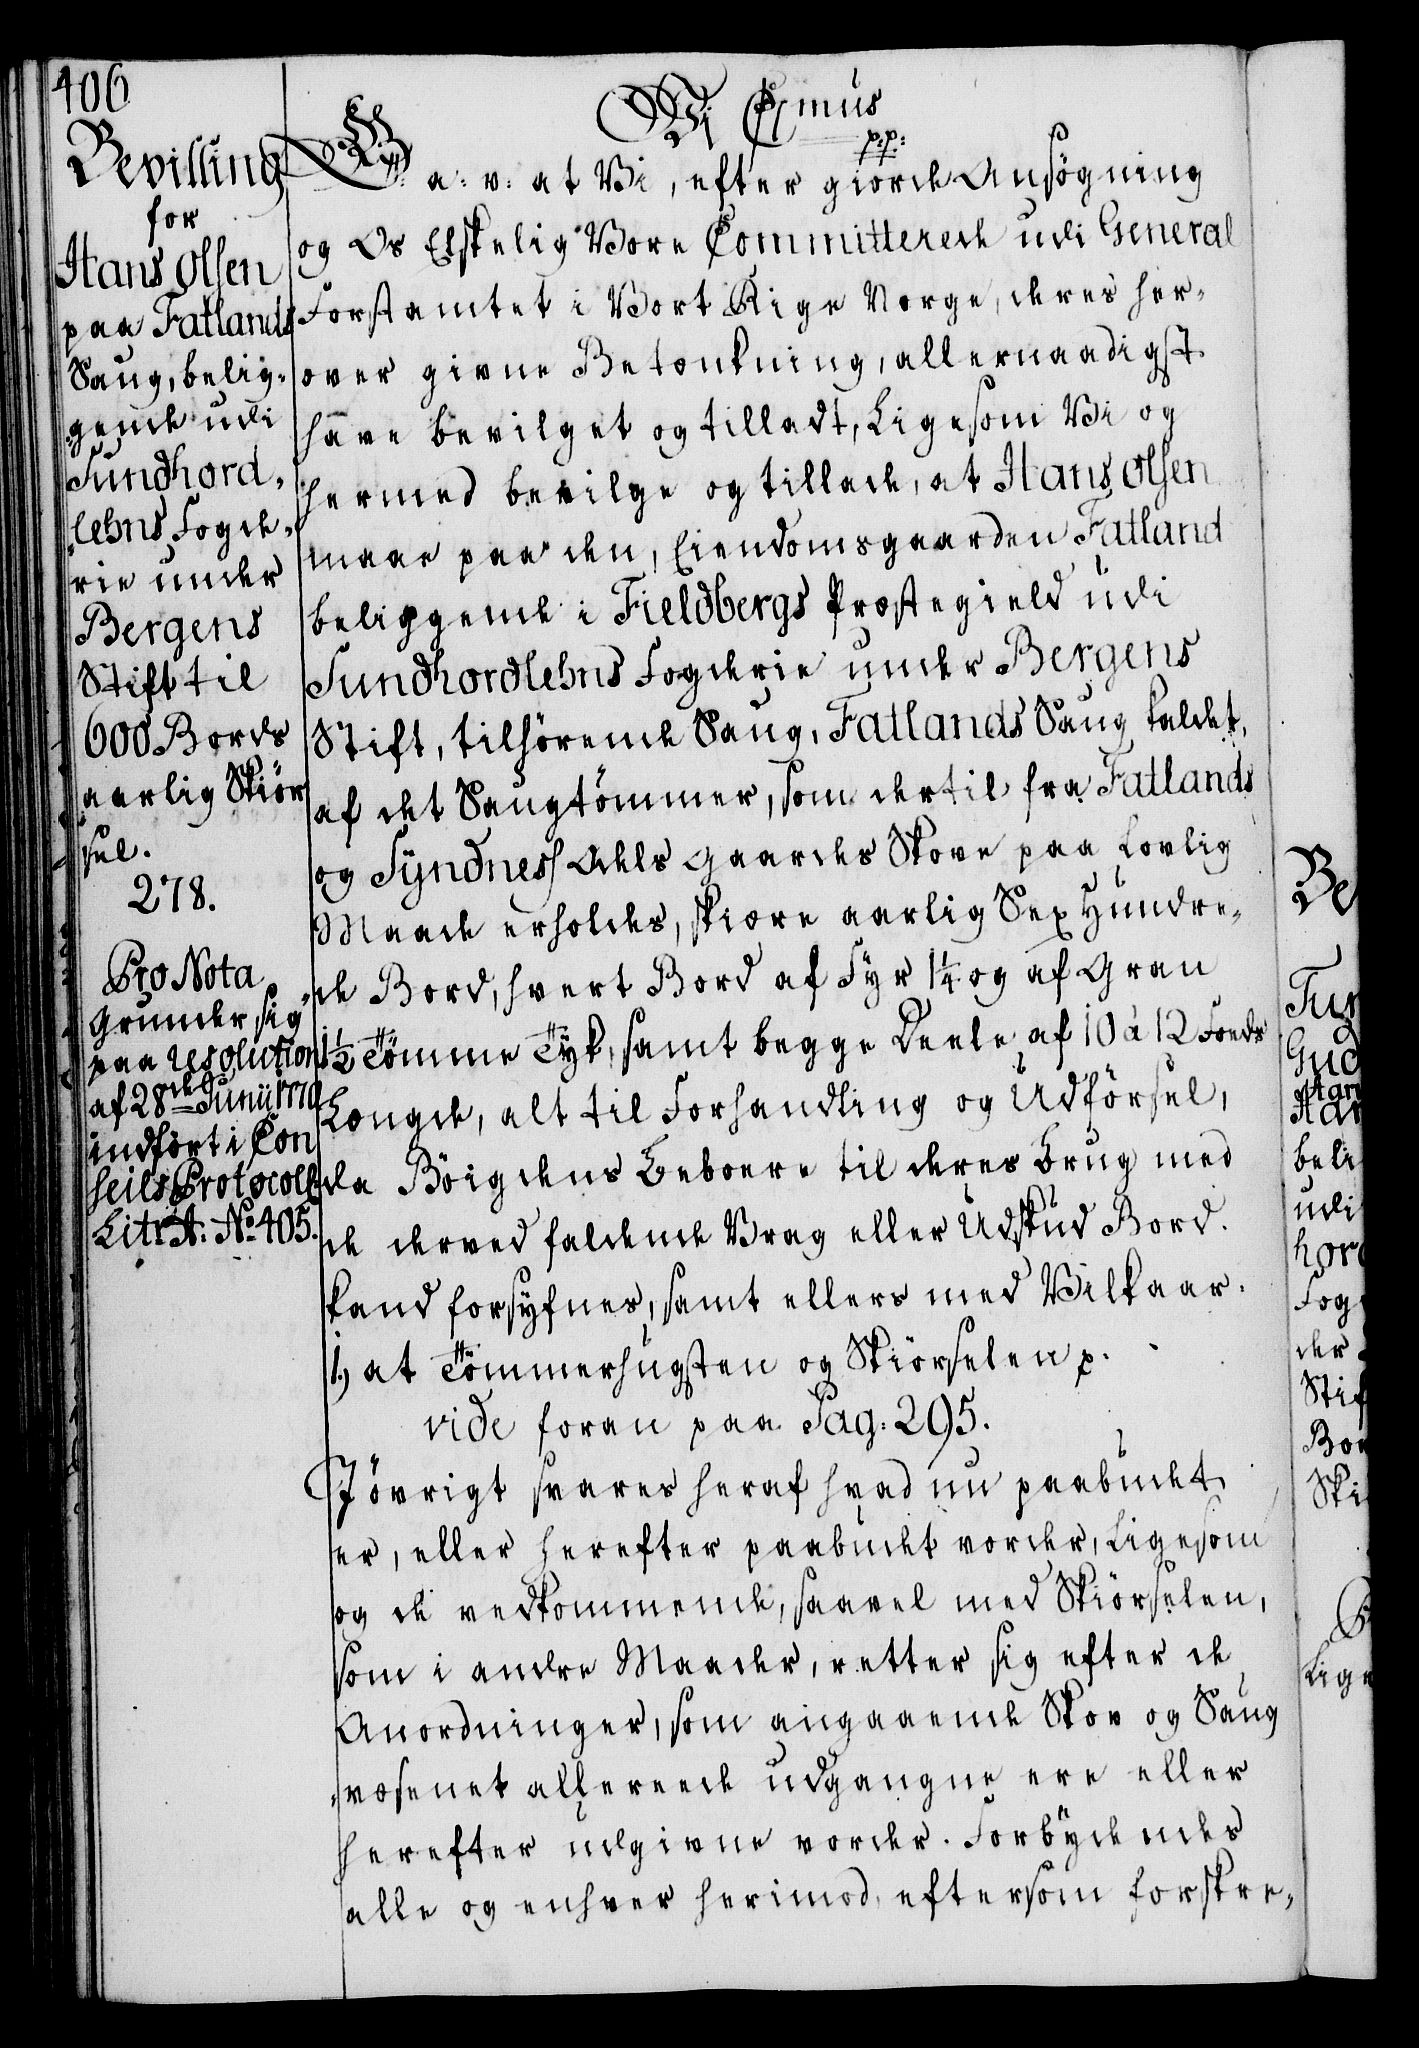 406
Bevilling
for
Hans Olsen
paa Fatlands
Saug, belig-
gende udi
Sundhord-
lehns Fogde-
rie under
Bergens
Stift til
600 Bords
aarlig Skiør
sel.
278.
Pro Nota
Grunder sig
paa resolution
af 28de Junii 1770
indført i Con
seils Protocoll
Litr. A: No. 405.
Vi Cſmus
p:p:
G: a: v: at Vi, efter giorde Ansøgning
og Os Elskelig Vore Committerede udi General
Forstamtet i Vort Rige Norge, deres her-
over givne Betænkning, allernaadigst
have bevilget og tilladt, Ligesom Vi og
hermed bevilge og tillade, at Hans Olsen
maae paa den, Eiendomsgaarden Fatland
beliggende i Fieldbergs Præstegield udi
Sundhordlehns Fogderie under Bergens
Stift, tilhørende Saug, Fatlands Saug kaldet,
af det Saugtømmer, som dertil fra Fatlands
og Syndness Odels Gaardes Skove paa Lovlig
Maade erholdes, skiære aarlig Sex Hundre-
de Bord, hvert Bord af Fyr 1¼ og af Gran
1½ Tomme Tyk, samt begge Deele af 10 à 12 Foeds
Længde, alt til Forhandling og Udførsel,
da Bøigdens Beboere til deres Brug med
de derved faldende Vrag eller Udskud Bord
kand forsyfnes, samt ellers med Vilkaar.
1.) at Tømmerhugsten og Skiørselen p.
vide foran paa Pag: 295.
Iøvrigt svares heraf hvad nu paabudet
er, eller herefter paabudet vorder, Ligesom
og de vedkommende, saavel med Skiørselen,
som i andre Maader, retter sig efter de
Anordninger, som angaaende Skov og Saug
væsenet allereede udgangne ere eller
herefter udgivne vorder. Forbydendes
alle og enhver herimod, eftersom forskre-
Be
Gud
Har
beli
udi
hord
Fog
der
Stif
Bor
Ski
Lige